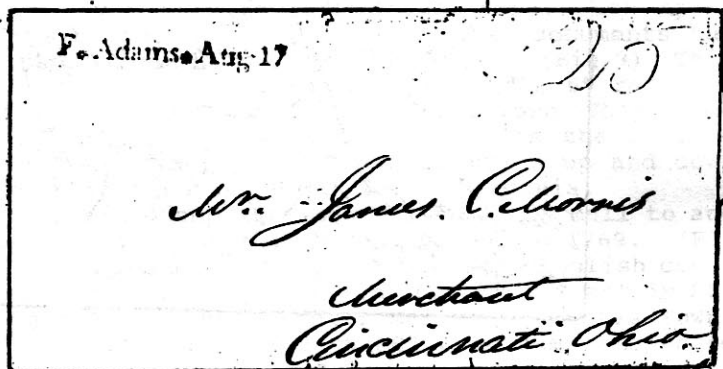 F. Adams. Aug 17
25
Mr. James. C. Morris
Merchant
Cincinnati Ohio.